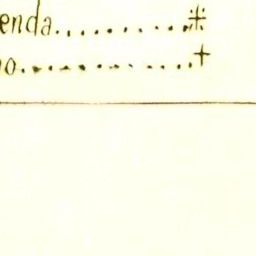 enda............⁜
o...............†